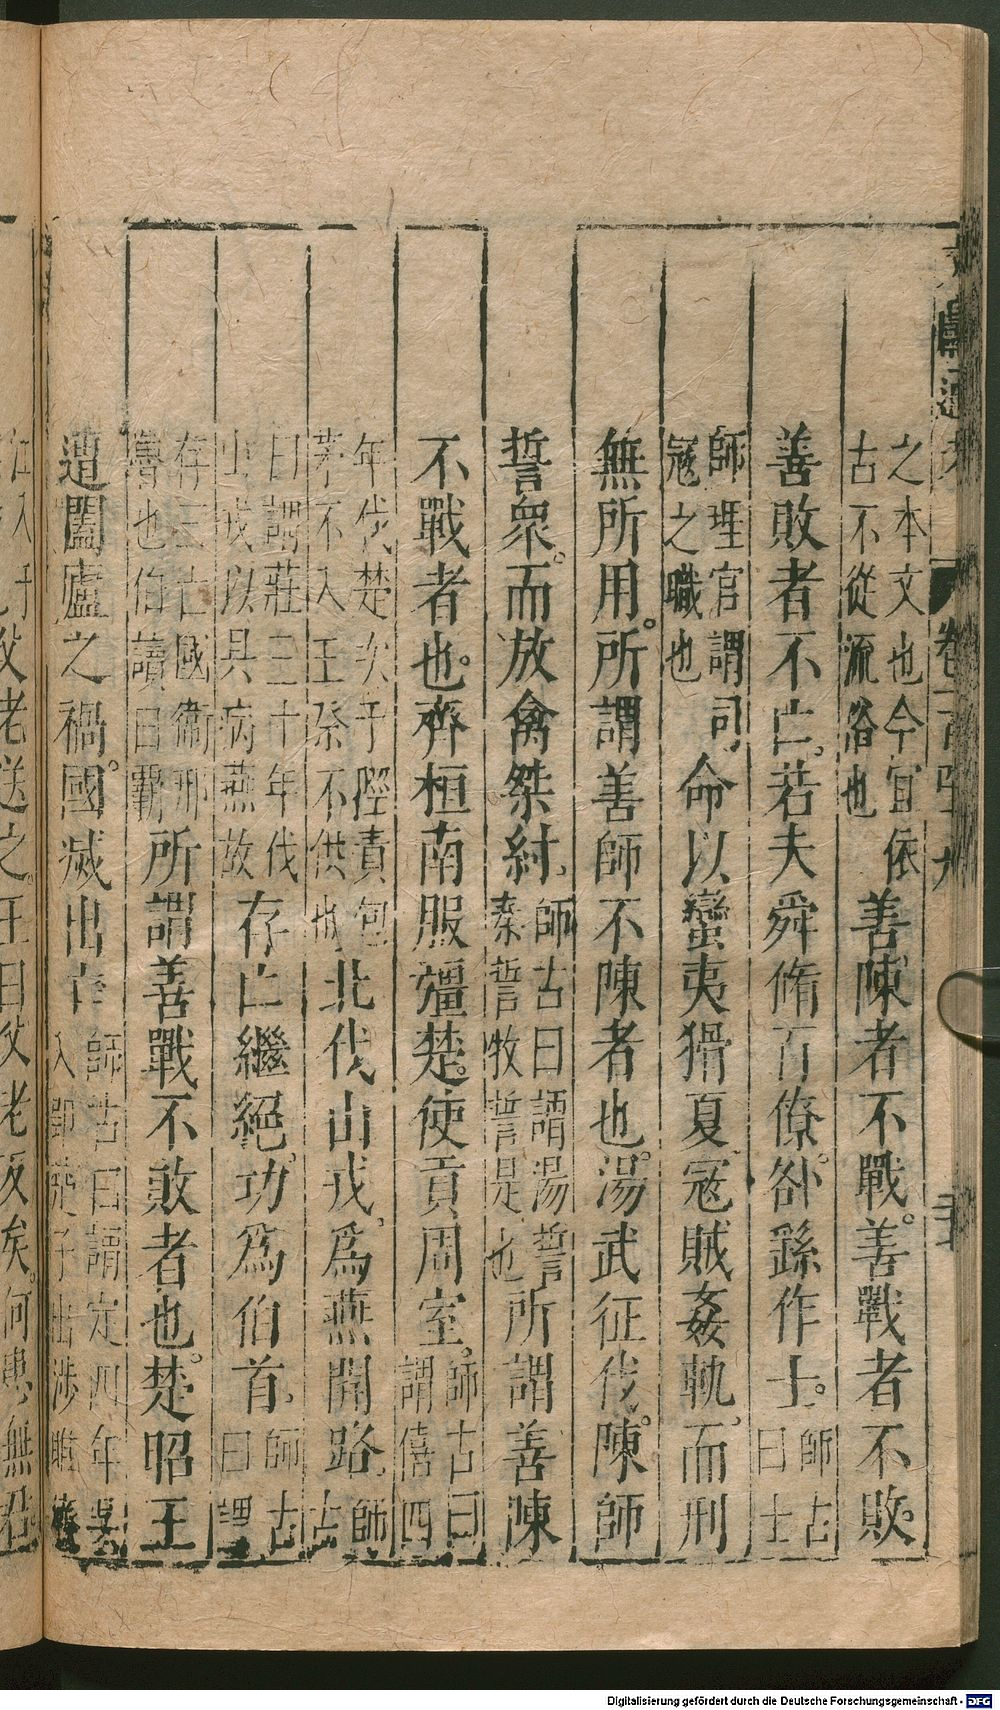 之本文也今宜依
古不從流俗也
善陳者不戰善戰者不敗
善敗者不亡若夫舜脩百僚咎繇作士
師古
曰士
師理官謂司
寇之職也
命以蠻夷猾夏寇賊姦軌而刑
無所用所謂善師不陳者也湯武征伐陳師
誓衆而放禽桀紂
師古曰謂湯誓
秦誓牧誓是也
所謂善陳
不戰者也齊桓南服彊楚使貢周室
師古曰
謂僖四
年伐楚次于陘責包
茅不入王祭不供也
北伐山戎爲燕開路
師
古
曰謂莊三十年伐
山戎以其病燕故
存亡繼絕功爲伯首
師古
曰謂
存三亡國衛邢
魯也伯讀曰霸
所謂善戰不敗者也楚昭王
遭闔廬之禍國滅出亡
師古曰謂定四年吳
入郢楚子出涉睢
父老送之王曰父老反矣何患無君
Digitalisierung gefördert durch die Deutsche Forschungsgemeinschaft - DFG